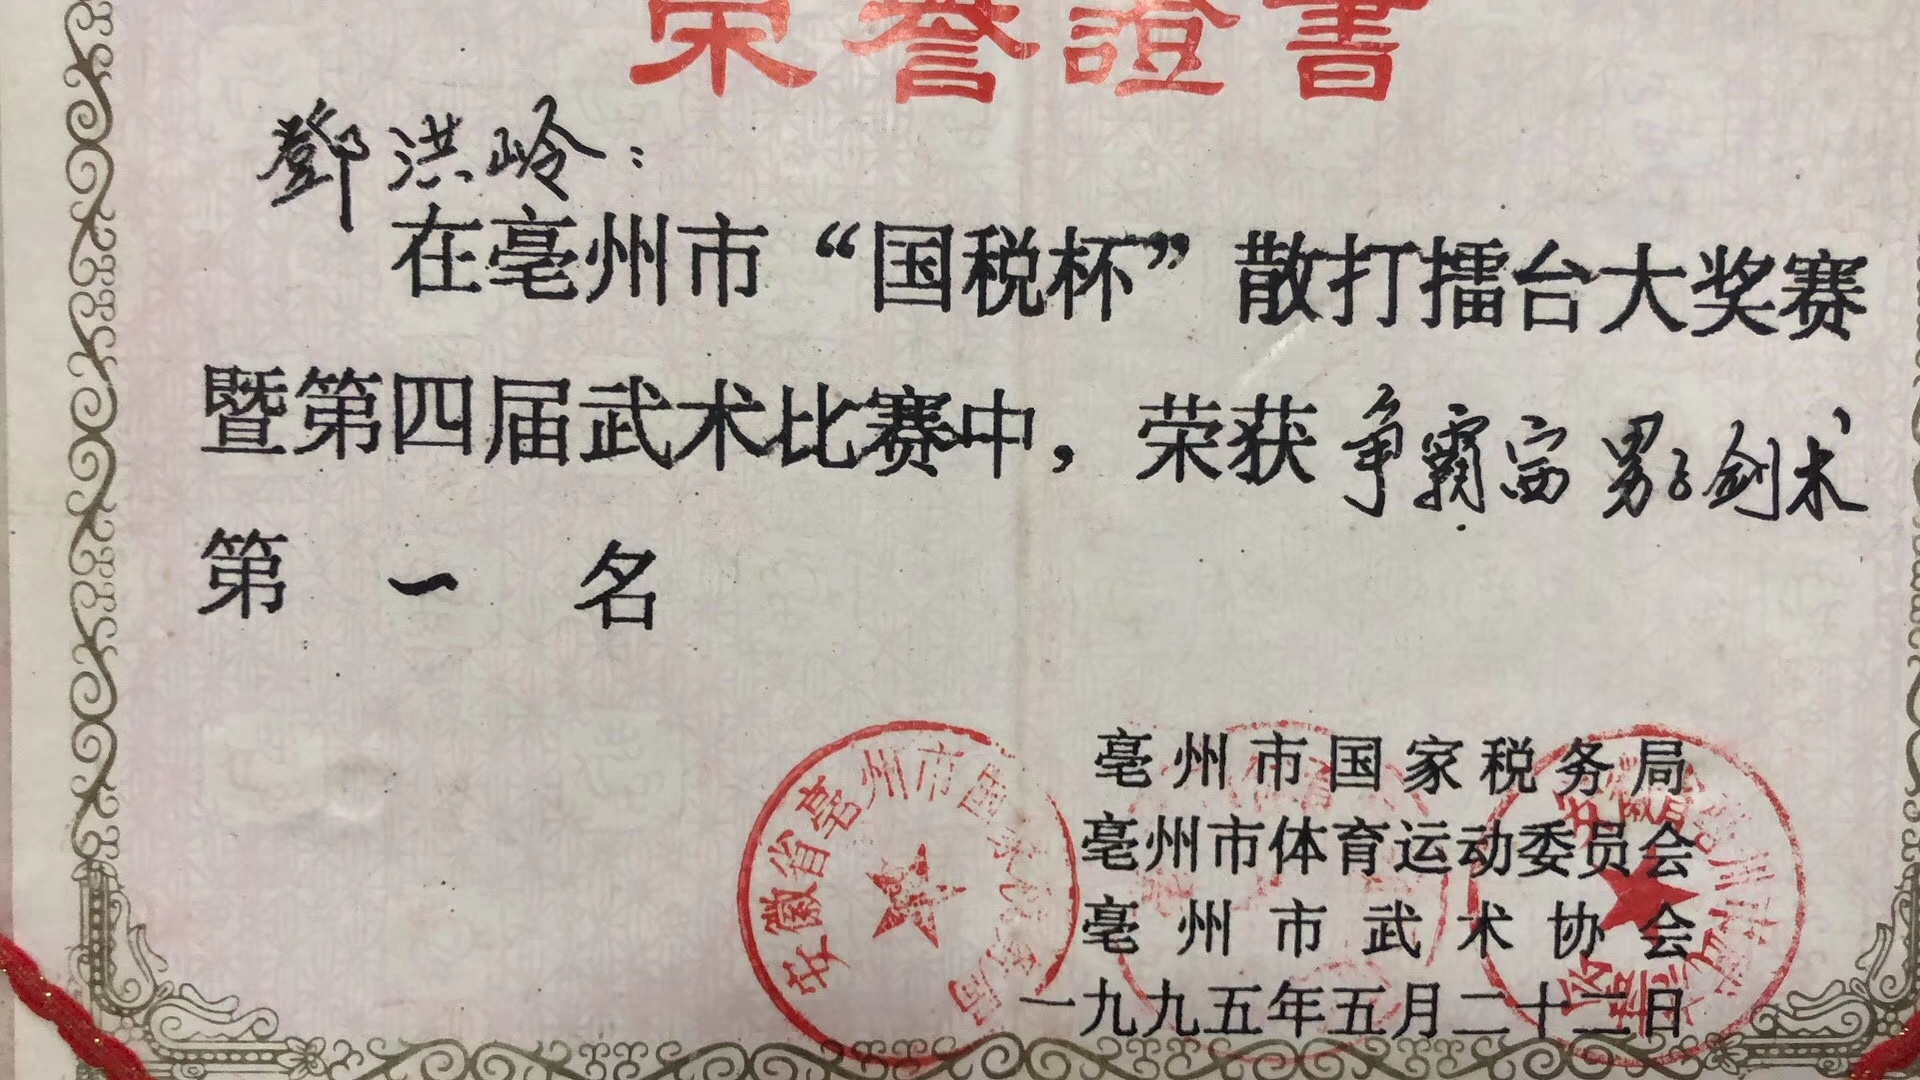 荣誉證書
鄧洪岭：
在亳州市“国税杯”散打擂台大奖赛
暨第四届武术比赛中，荣获争霸赛男子剑术
第一名
亳州市国家税务局
亳州市体育运动委员会
亳州市武术协会
一九九五年五月二十二日
安徽省亳州市国家税务局